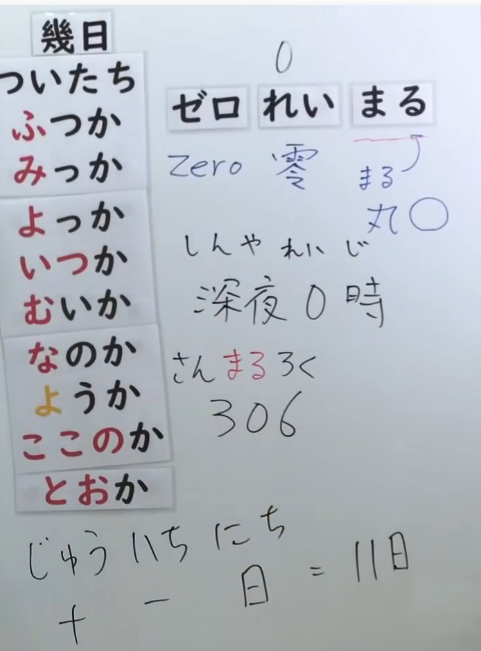 幾日
ついたち
ふつか
みっか
よっか
いつか
むいか
なのか
ようか
ここのか
とおか
0
ゼロ れい まる
zero 零 まる
丸〇
しんや れい じ
深夜0時
さんまるろく
306
じゅう いち にち
十 一 日 = 11日